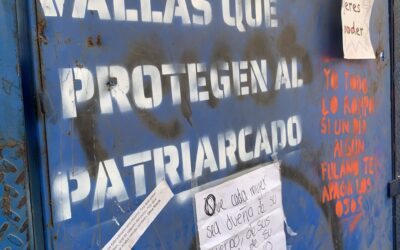 VALLAS QUE
PROTEGEN AL
PATRIARCADO
eres
poder
YO TODO
LO ROMPO
SI UN DIA
ALGUN
FULANO TE
APAGA LOS
OJOS
Que cada mujer
sea dueña de su
cuerpo, de sus
de su